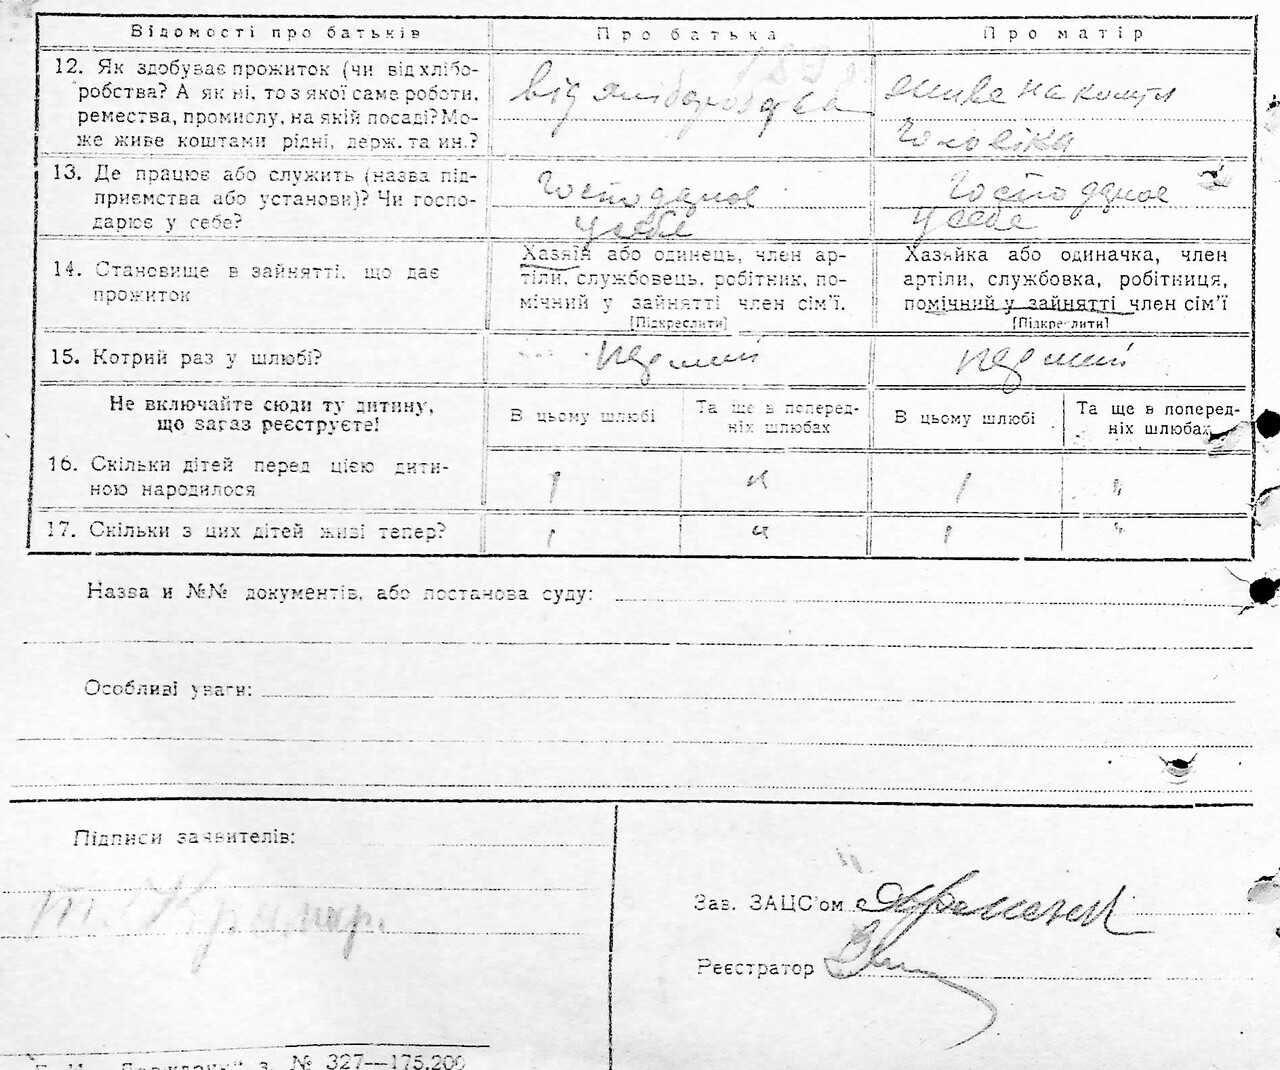 Відомості про батьків Про батька Про матір
12. Як здобуває прожиток (чи від хлібо-
робства? А як ні, то з якої саме роботи,
ремества, промислу, на якій посаді? Мо-
же живе коштами рідні, держ. та ин.?
від хліборобства
живе на кошти
чоловіка
13. Де працює або служить (назва під-
приємства або установи)? Чи госпо-
дарює у себе?
Господарює
у себе
Господарює
у себе
14. Становище в зайнятті, що дає
прожиток
Хазяїн або одинець, член ар-
тіли, службовець, робітник, по-
мічний у зайнятті член сім'ї.
[Підкреслити]
Хазяйка або одиначка, член
артіли, службовка, робітниця,
помічний у зайнятті член сім'ї
[Підкреслити]
15. Котрий раз у шлюбі? перший перший
Не включайте сюди ту дитину,
що зараз реєструєте!
В цьому шлюбі
Та ще в поперед-
ніх шлюбах
В цьому шлюбі
Та ще в поперед-
ніх шлюбах
16. Скільки дітей перед цією дити-
ною народилося
1 " 1 "
17. Скільки з цих дітей живі тепер? 1 " 1 "
Назва и №№ документів, або постанова суду:
Особливі уваги:
Підписи заявителів:
Зав. ЗАЦС'ом
Реєстратор
№ 327—175.200